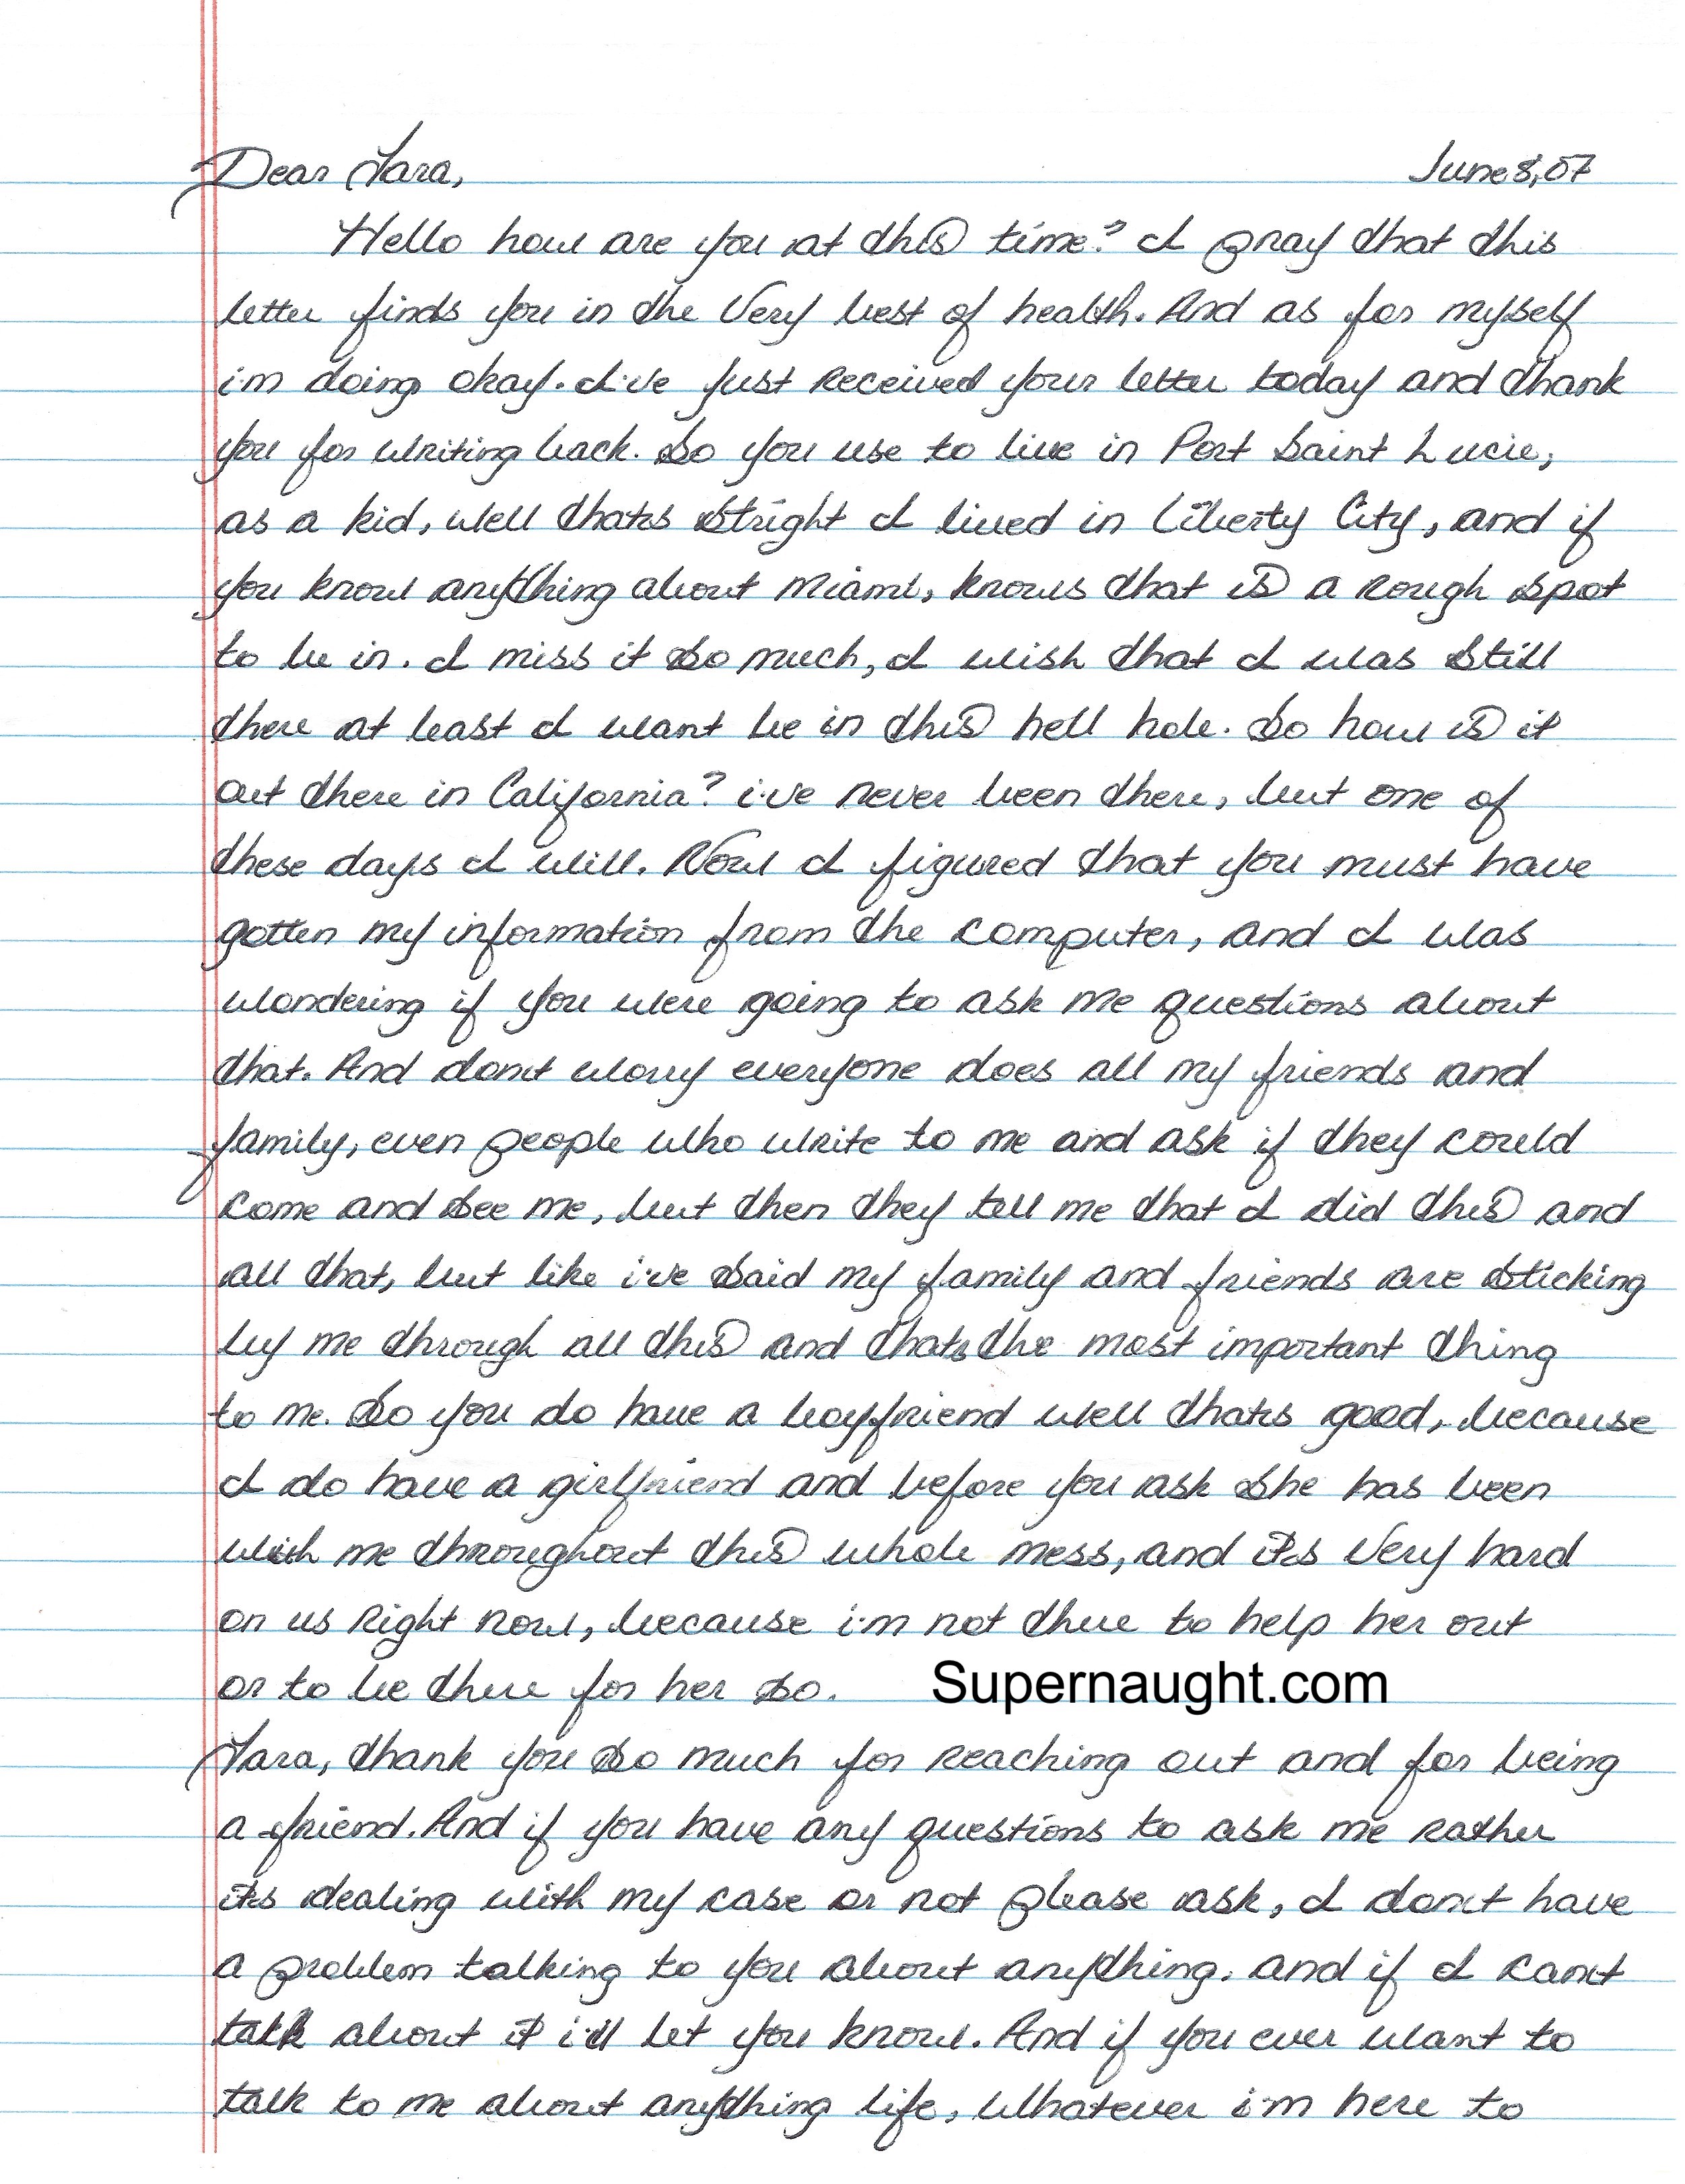 Dear Tara, June 8, 07
Hello how are you at this time? I pray that this
letter finds you in the Very best of health. And as for myself
i'm doing okay. I've just Received your letter today and thank
you for writing back. So you use to live in Port Saint Lucie,
as a kid, well that's stright I lived in Liberty City, and if
you know anything about Miami, knows that is a Rough spot
to be in. I miss it so much, I wish that I was still
there at least I want be in this hell hole. So how is it
out there in California? i've never been there, but one of
these days I will. Now I figured that you must have
gotten my information from the computer, and I was
wondering if you were going to ask me questions about
that. And don't worry everyone does all my friends and
family, even people who write to me and ask if they could
come and see me, but then they tell me that I did this and
all that, but like i've said my family and friends are sticking
by me through all this and thats the most important thing
to me. So you do have a boyfriend well that's good, because
I do have a girlfriend and before you ask she has been
with me throughout this whole mess, and it's Very hard
on us Right now, because i'm not there to help her out
or to be there for her so.
Supernaught.com
Tara, thank you so much for Reaching out and for being
a friend. And if you have any questions to ask me Rather
it's dealing with my case or not please ask, I don't have
a problem talking to you about anything. and if I can't
talk about it i'll let you know. And if you ever want to
talk to me about anything life, Whatever i'm here to